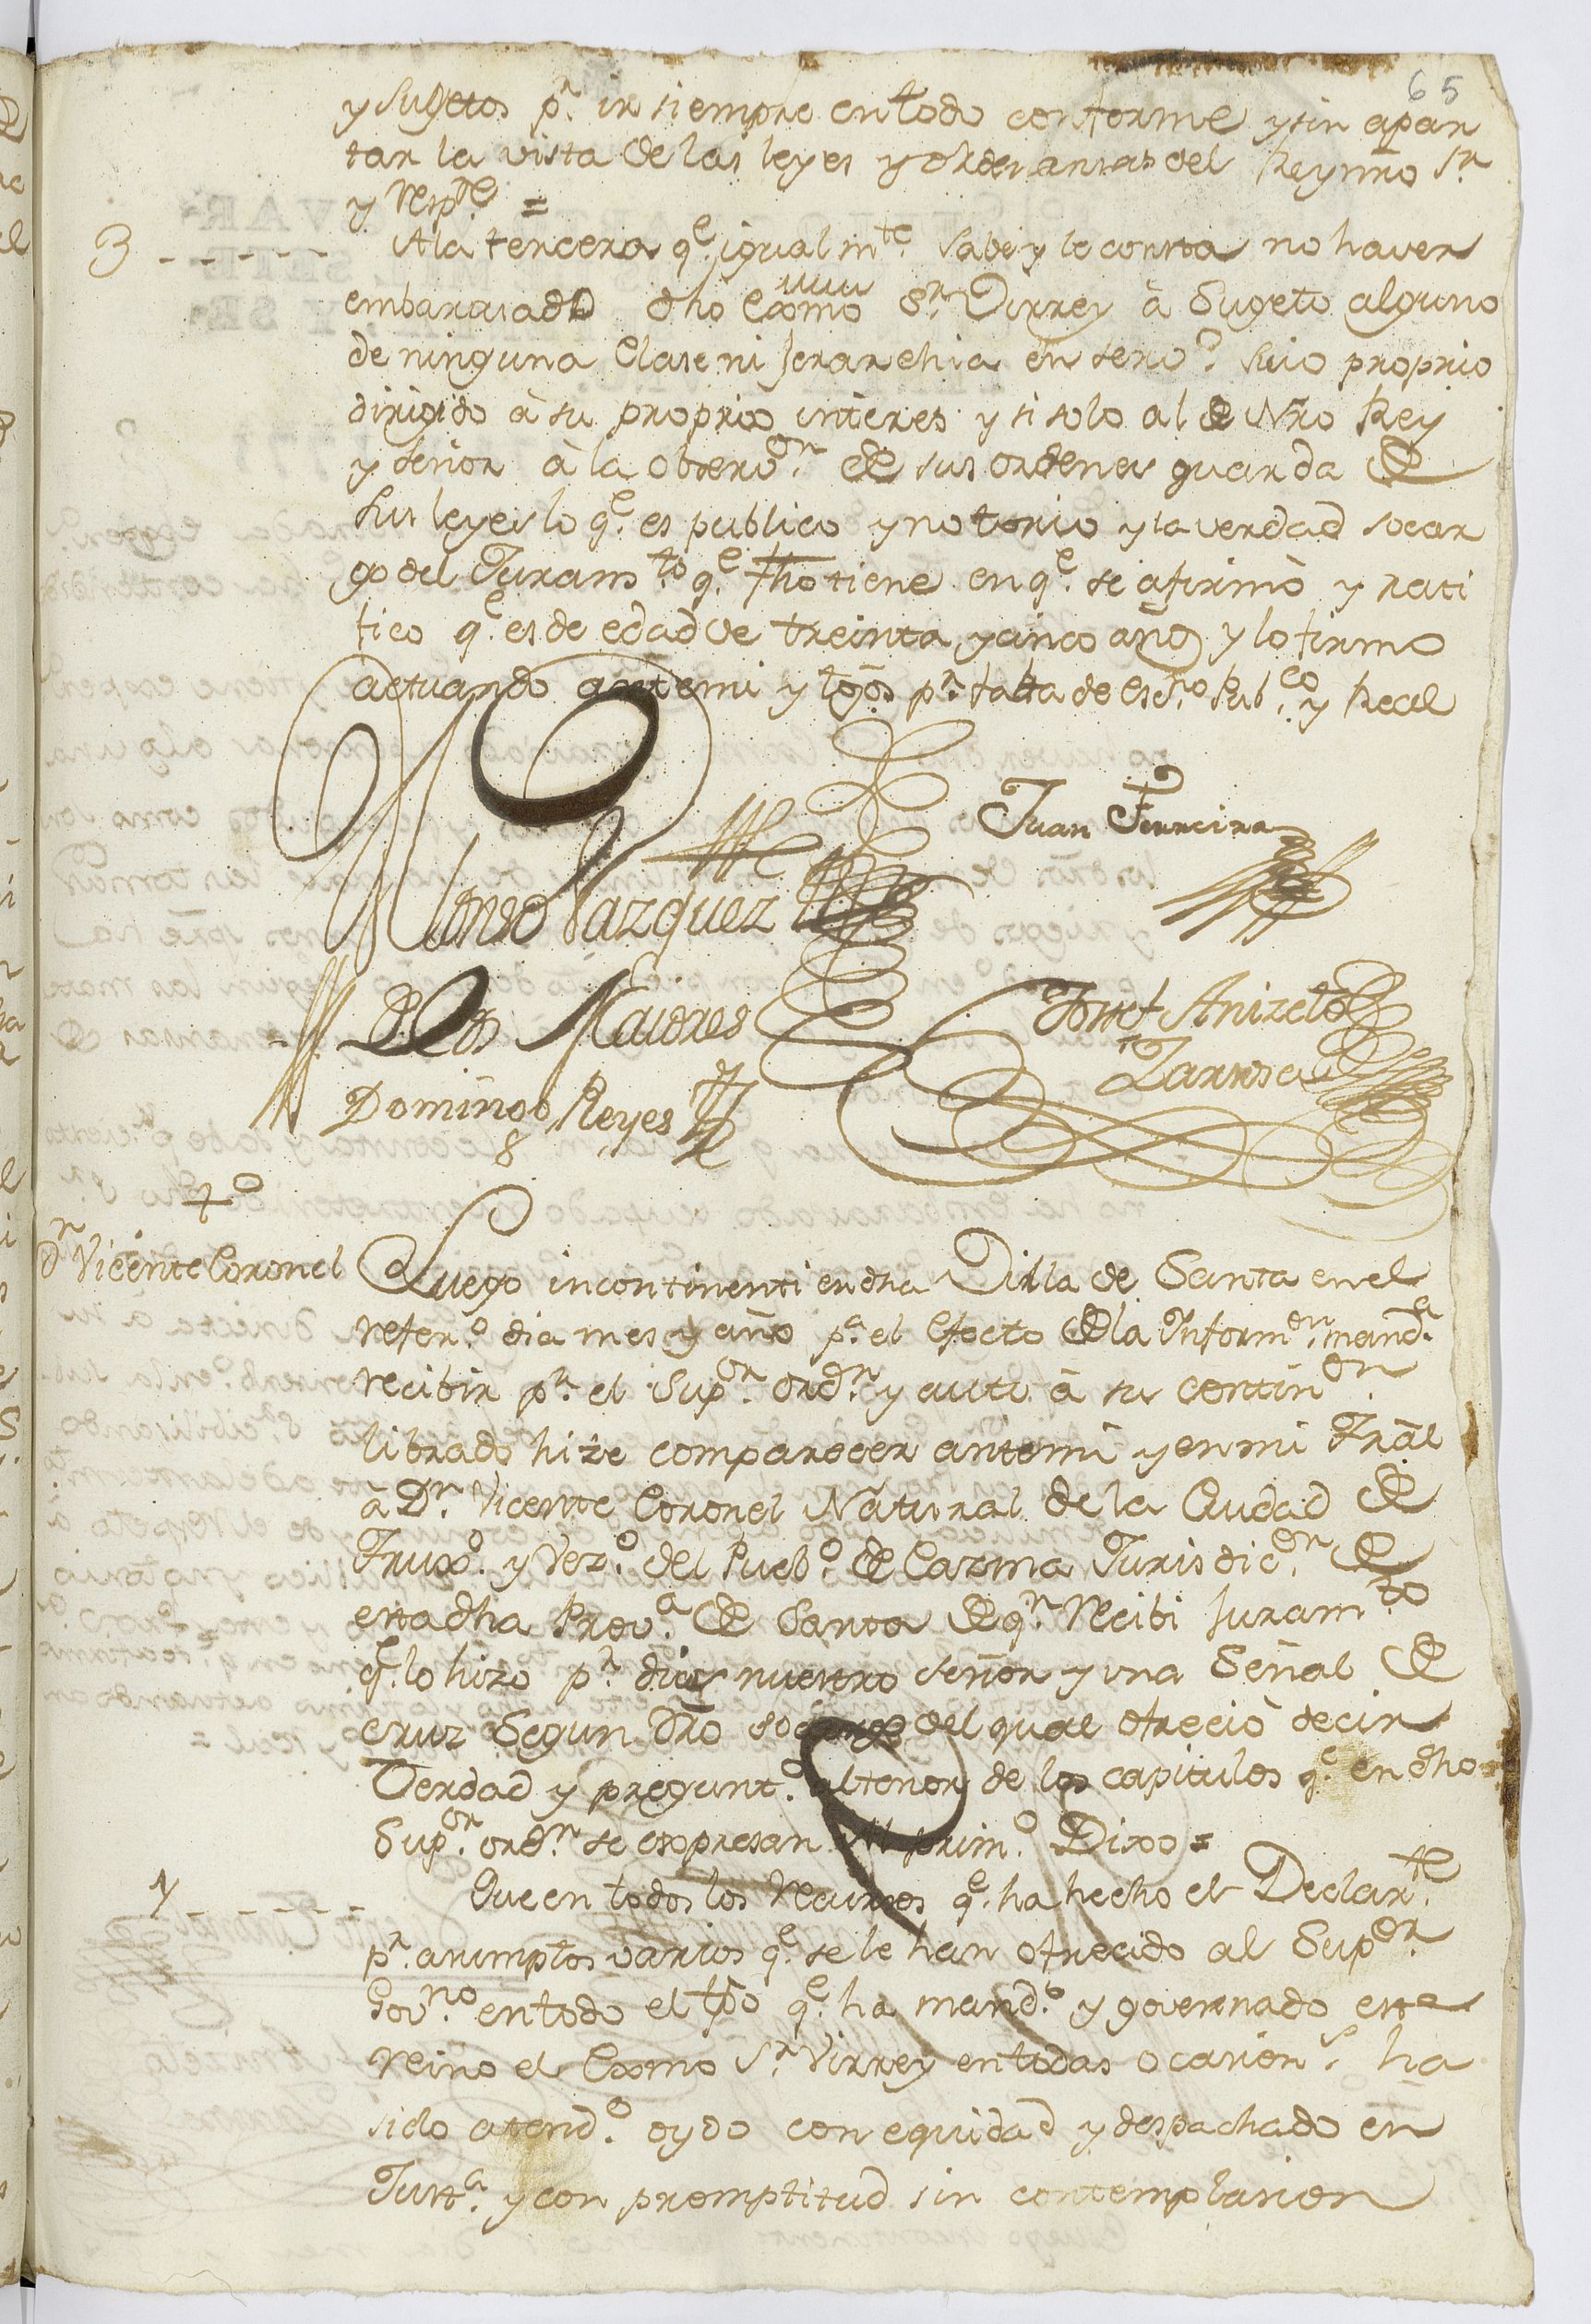 65
y Sugetos pr. ir siempre en todo conforme y sin apar
tar la vista de las leyes y ordenansas del Rey nro Sr
y Respte. =
3 - - - - - - A la tercera qe. igualmte. save y le consta no haver
embarasado dho Exmo Sr. Virrey à Sugeto alguno
de ninguna Clase ni Jerarchia en servo. suio proprio
dirigido à su proprio interes y si solo al de Nro Rey
y señor à la observon. de sus ordenes guarda de
sus leyes lo qe. es publico y notorio y la verdad socar
go del Juramto. qe. fho tiene en qe. se afirmò y rati
fico qe. es de edad de treinta y cinco años y lo firmo
actuando antemi y tgos pr. falta de essno. Pubco. y Real
Alonso Vazquez
Juan Ferreira
Domingo Reyes
Josef Anizeto
8
to
Dn Vicente Coronel
Luego incontinenti en dha Villa de Santa en el
refero. dia mes y año pa. el efecto de la Informon. manda.
recibir pr. el Supor. ordn. y auto à su continon.
librado hize comparecer antemi y en mi Tral
à Dn. Vicente Coronel Natural de la Ciudad de
Truxo. y Vezo. del Puebo. de Casma Jurisdicon. de
esta dha Prova. de Santa de qn. Recibi Juramto.
qe. lo hizo pr. dios nuestro señor y una Señal de
cruz Segun dro socargo del qual ofreciò decir
Verdad y pregunto. al tenor de los capitulos qe. en dho
Supor. ordn. se expresan Al primo. Dixo =
1 - - - - - - Que en todos los Recursos qe. ha hecho el Declarte.
pr. asumptos varios qe. se le han ofrecido al Supor.
Govno. en todo el tpo qe. ha mando. y governado este
Reino el Exmo Sr. Virrey en todas ocasions. ha
sido atendo. oydo con equidad y despachado en
Justa. y con promptitud sin contemplasion